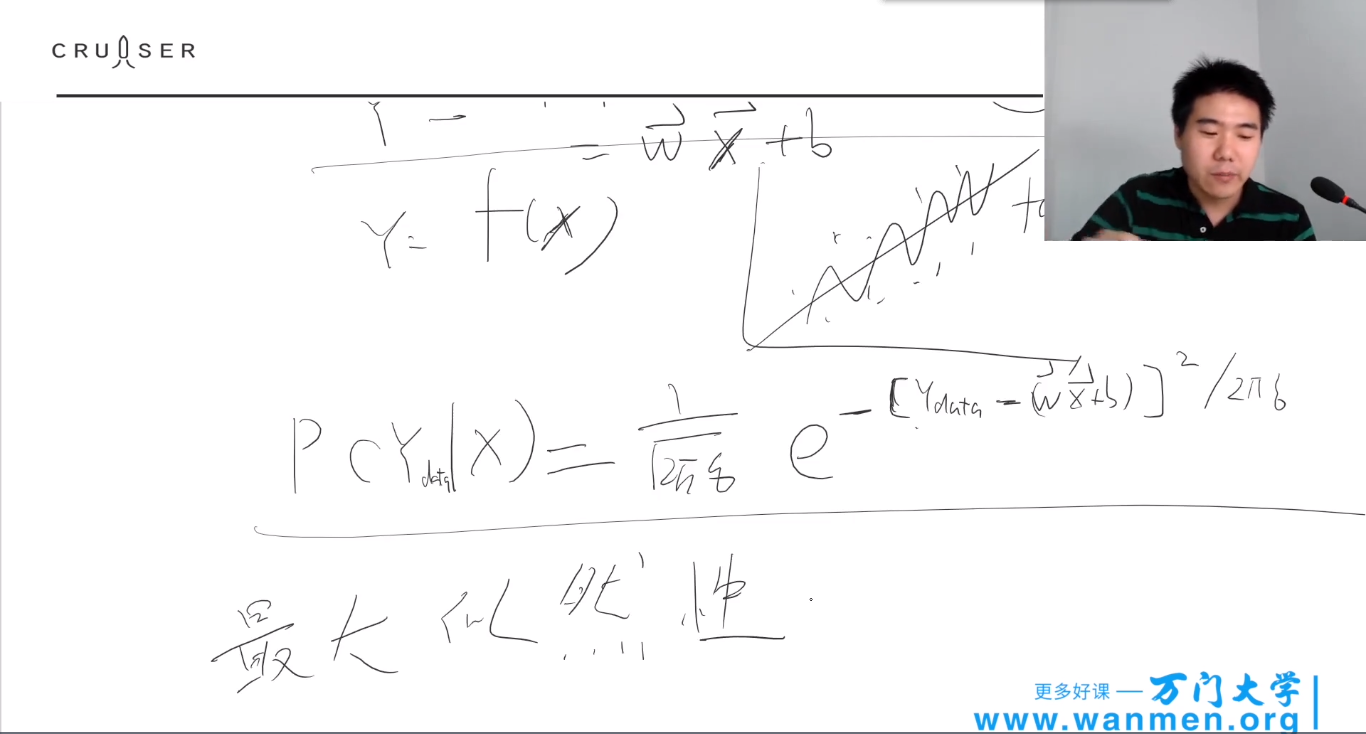 CRUISER
= w⃗ x⃗ + b
Y = f(x)
P(Y_data|X) = 1/√2πσ e^-[Y_data - (w⃗x⃗+b)]²/2πσ
最大似然性
更多好课 — 万门大学
www.wanmen.org